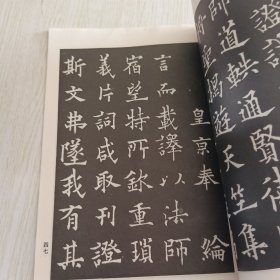 師道軼
遊天竺集
皇京奉 綸
言而載譯以法師
宿望特所欽重瑣
義片詞咸取刊證
斯文弗墜我有其
四七